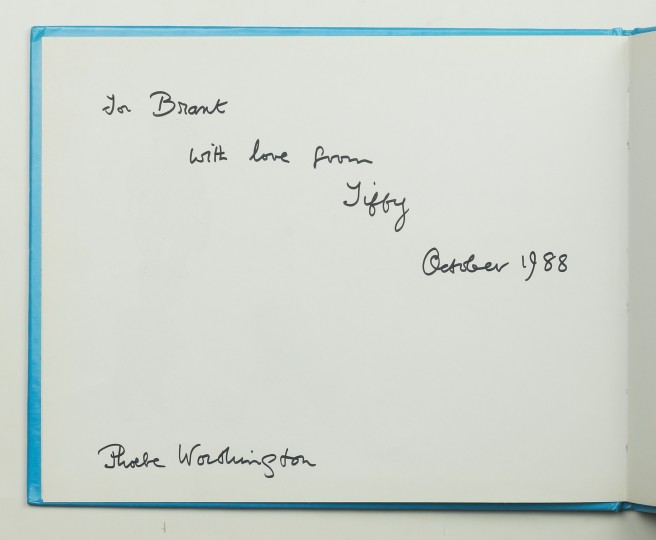 For Brant
with love from
Tiffy
October 1988
Phoebe Worthington